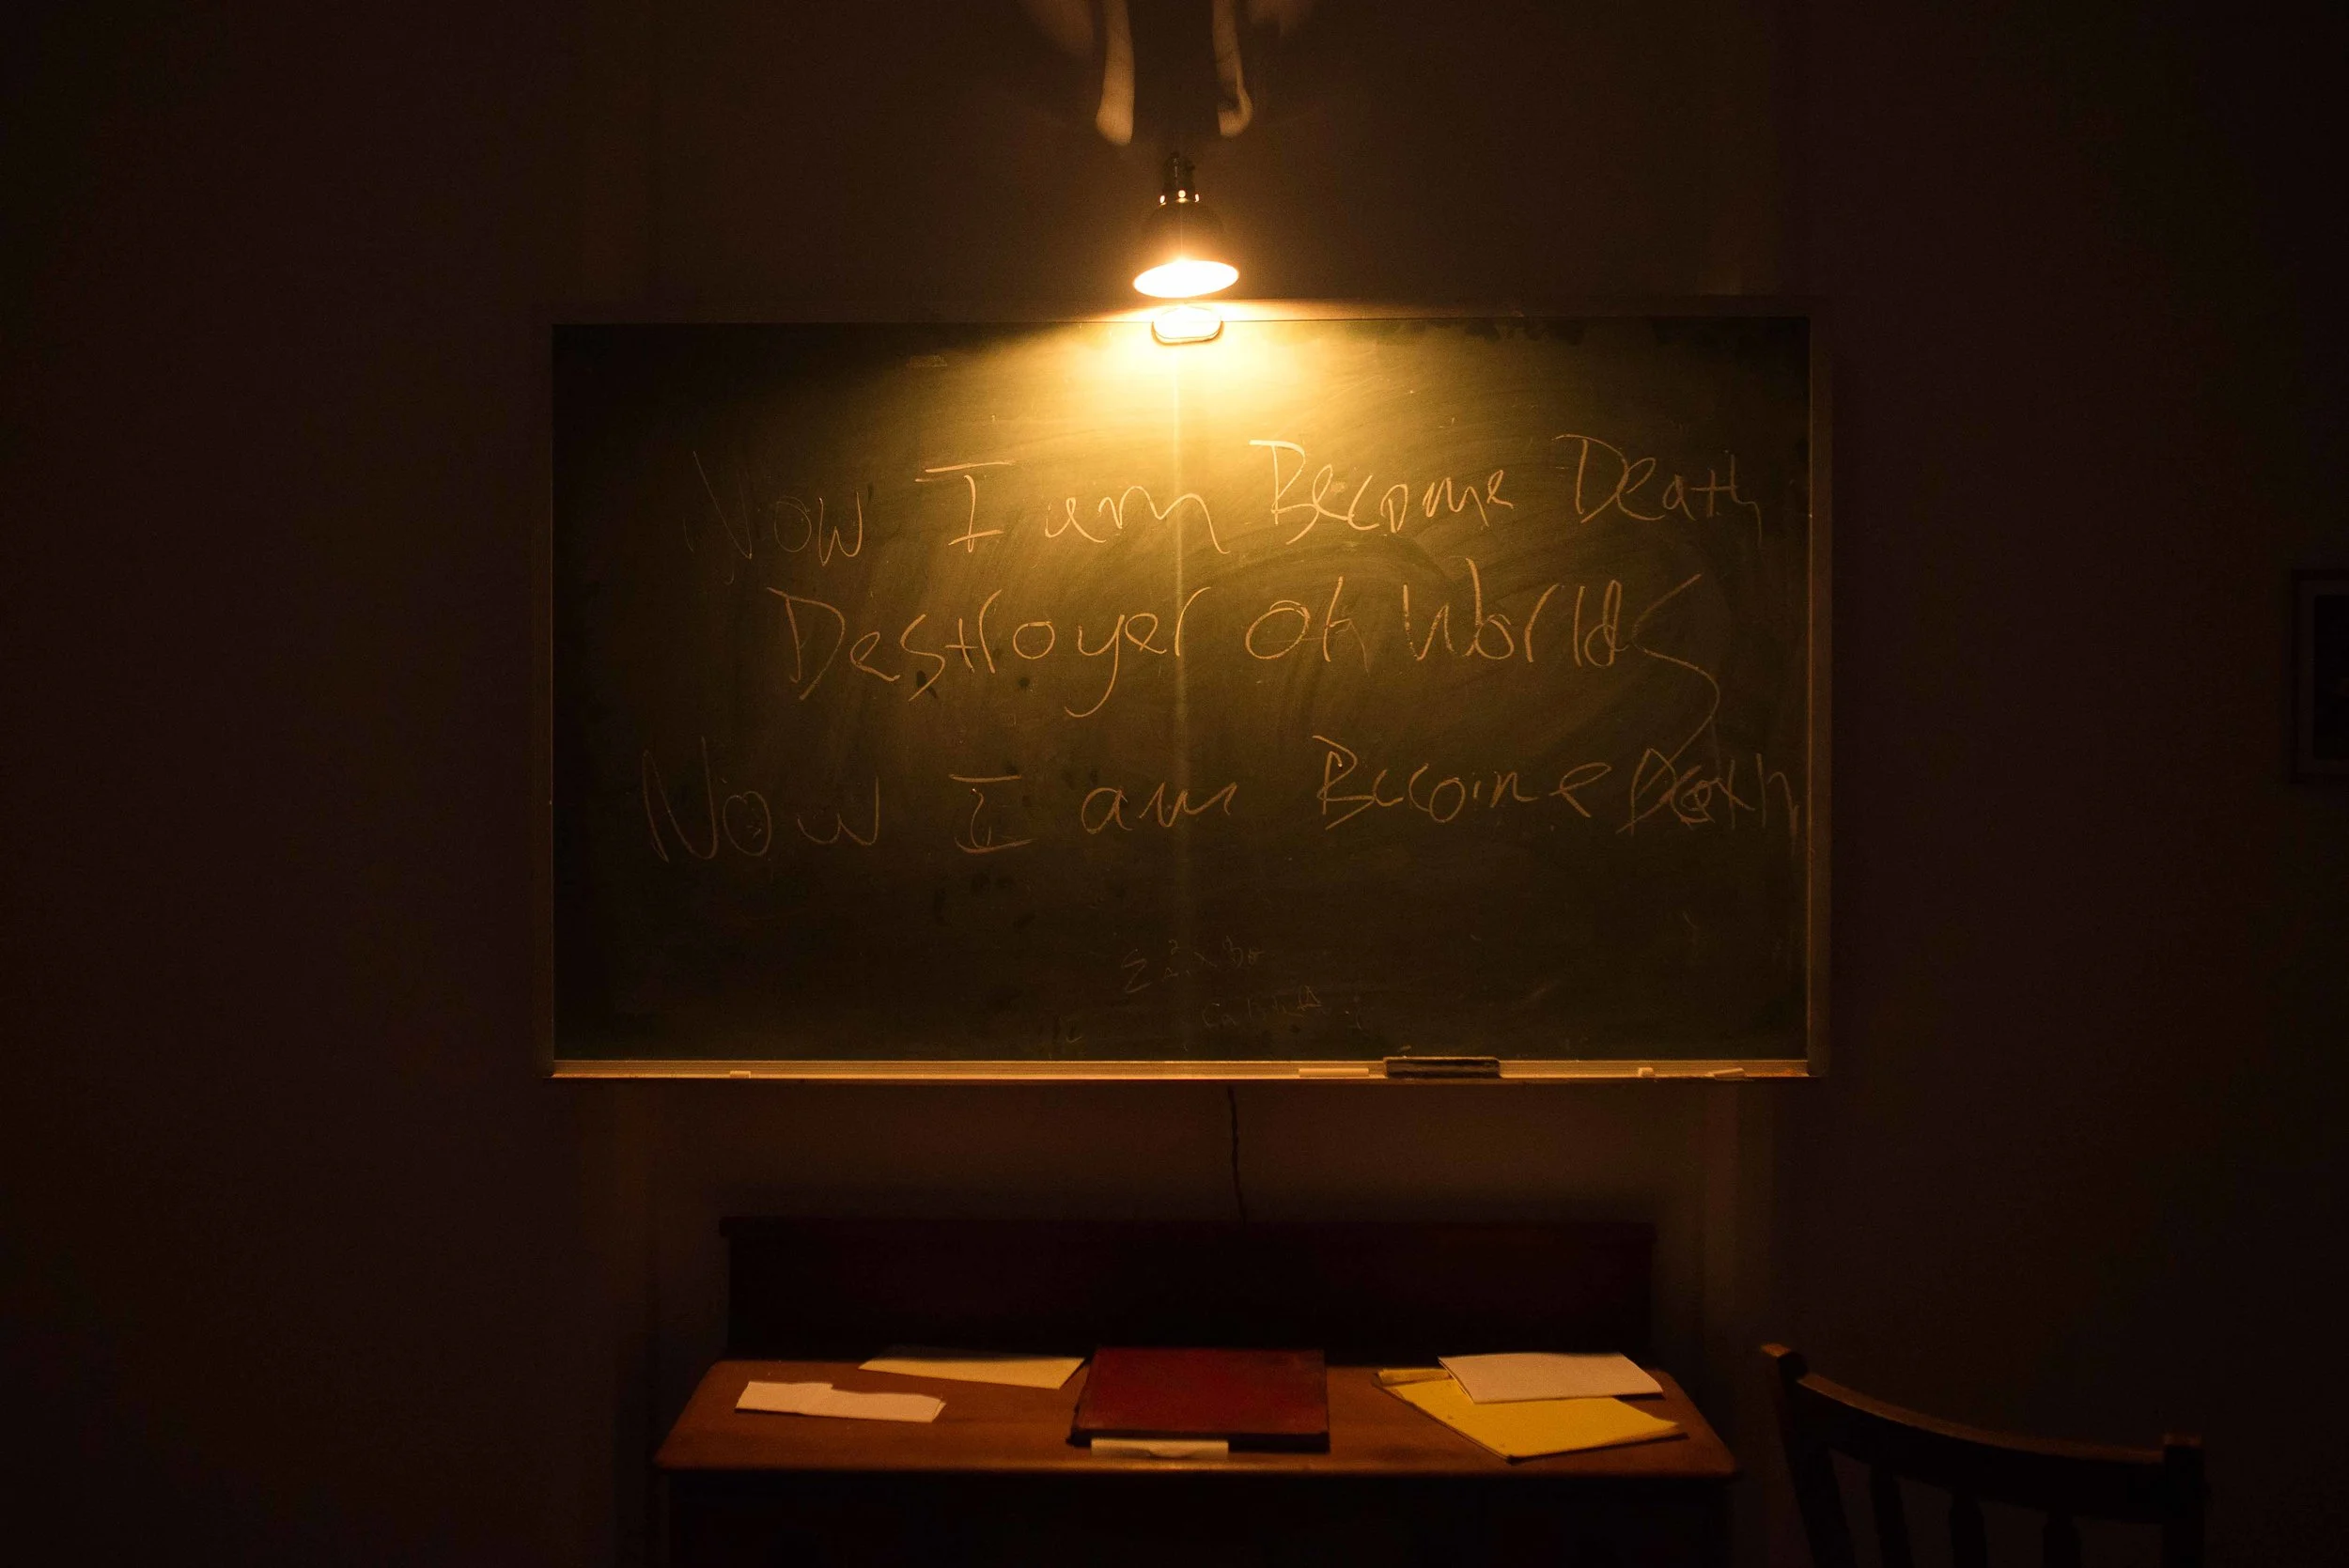 Now I am Become Death
Destroyer of Worlds
Now I am Become Death